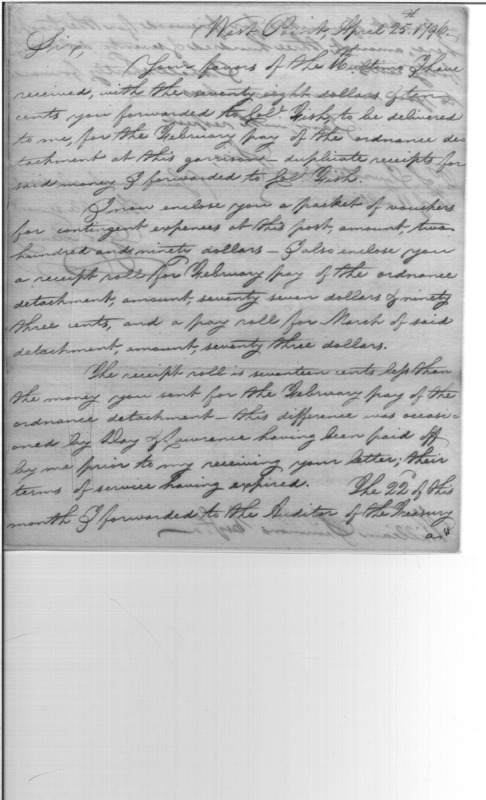 West Point April 25th 1796.
Sir,
Your favors of the ultimo I have
received, with the seventy eight dollars & ten
cents you forwarded to Col. Fish, to be delivered
to me, for the February pay of the ordnance de
tachment at this garrison – duplicate receipts for
said money I forwarded to Col. Fish.
I now enclose you a packet of vouchers
for contingent expences at this post, amount, two
hundred and ninety dollars – I also enclose you
a receipt roll for February pay of the ordnance
detachment, amount, seventy seven dollars & ninety
three cents, and a pay roll for March of said
detachment, amount, seventy three dollars.
The receipt roll is seventeen cents less than
the money you sent for the February pay of the
ordnance detachment – this difference was occasi-
oned by Day & Lawrance having been paid off
by me prior to my receiving your letter; their
terms of service having expired. The 22d of this
month I forwarded to the Auditor of the Treasury